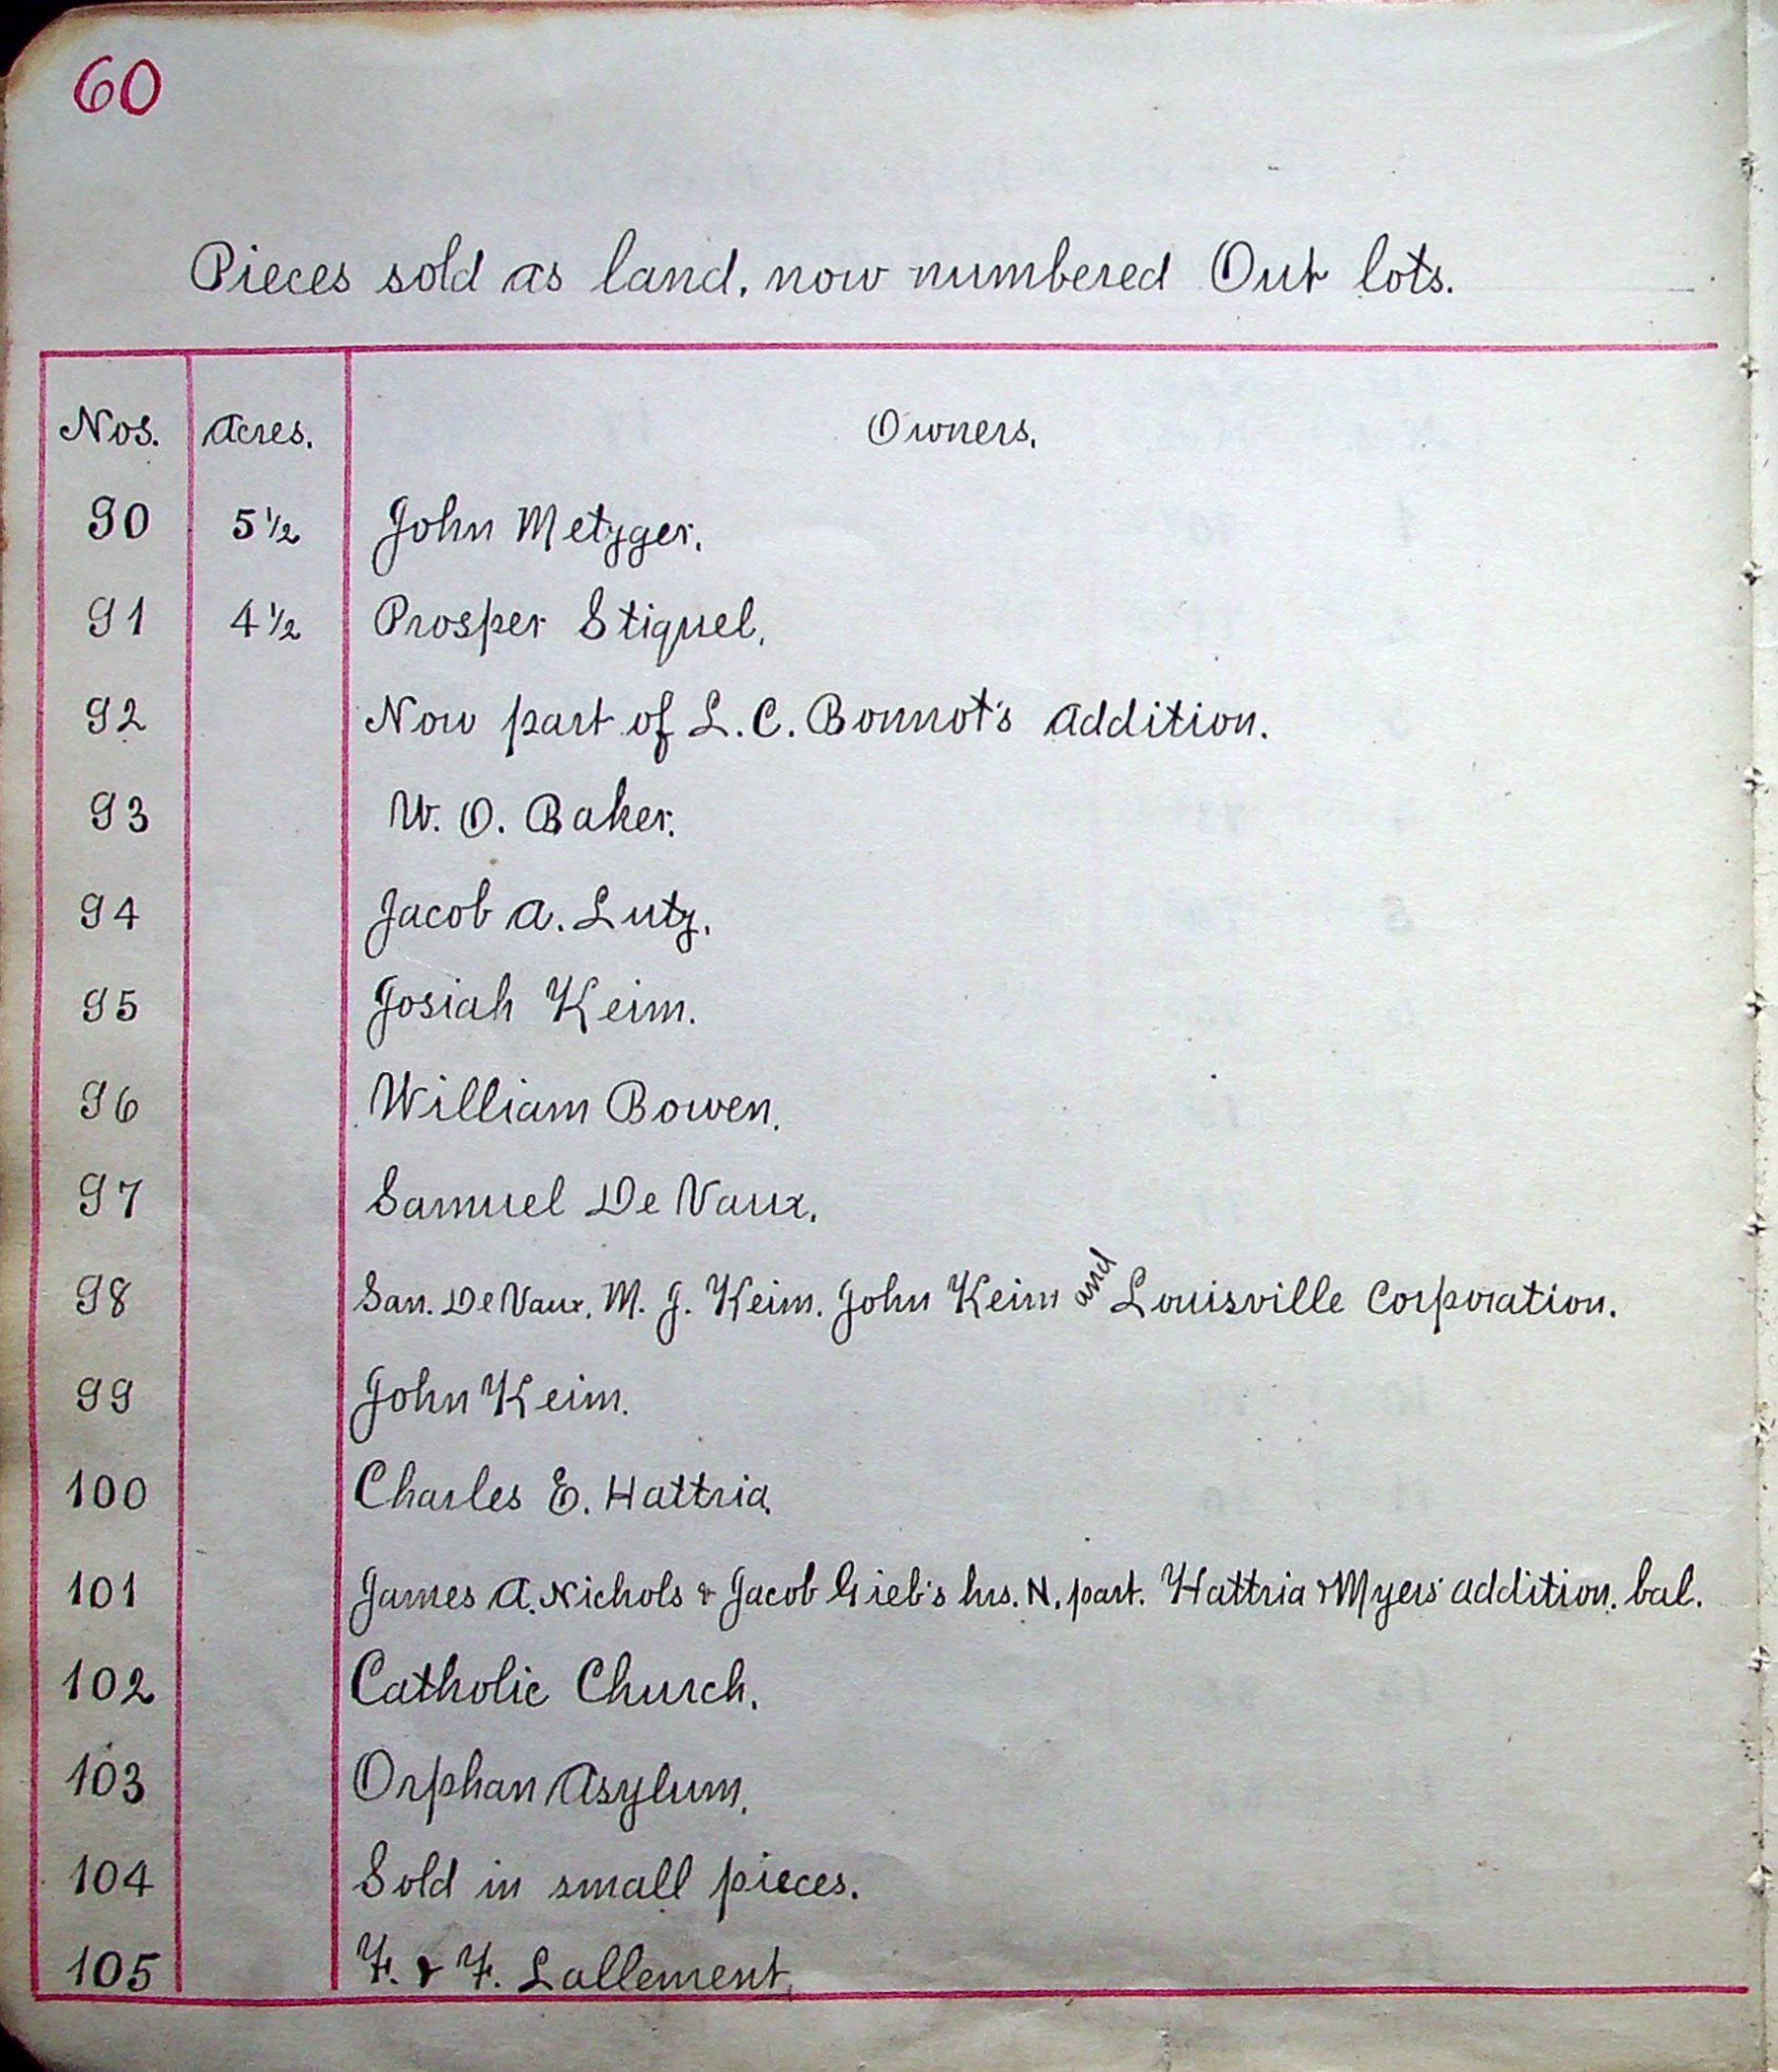 60
Pieces sold as land, now numbered Out lots.
Nos. Acres. Owners.
90 5 1/2 John Metzger.
91 4 1/2 Prosper Stiquel.
92 Now part of L. C. Bonnot's addition.
93 W. O. Baker.
94 Jacob A. Lutz.
95 Josiah Keim.
96 William Bowen.
97 Samuel De Vaux.
98 Sam. De Vaux, M. J. Keim. John Keim and Louisville Corporation.
99 John Keim.
100 Charles E. Hattria.
101 James A. Nichols & Jacob Grieb's hrs. N. part. Hattria & Myers' addition. bal.
102 Catholic Church.
103 Orphan Asylum.
104 Sold in small pieces.
105 F. & F. Lallement.